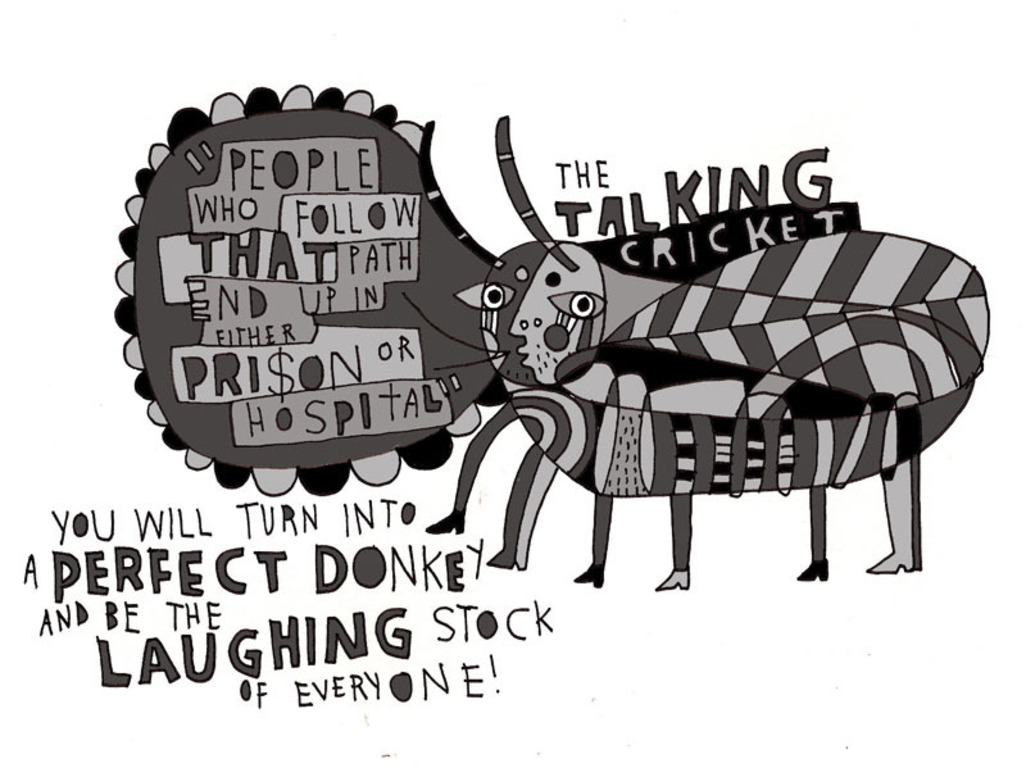 "PEOPLE
WHO FOLLOW
THAT PATH
END UP IN
EITHER
PRI$ON OR
HOSPITAL"
THE
TALKING
CRICKET
YOU WILL TURN INTO
A PERFECT DONKEY
AND BE THE
LAUGHING STOCK
OF EVERYONE!